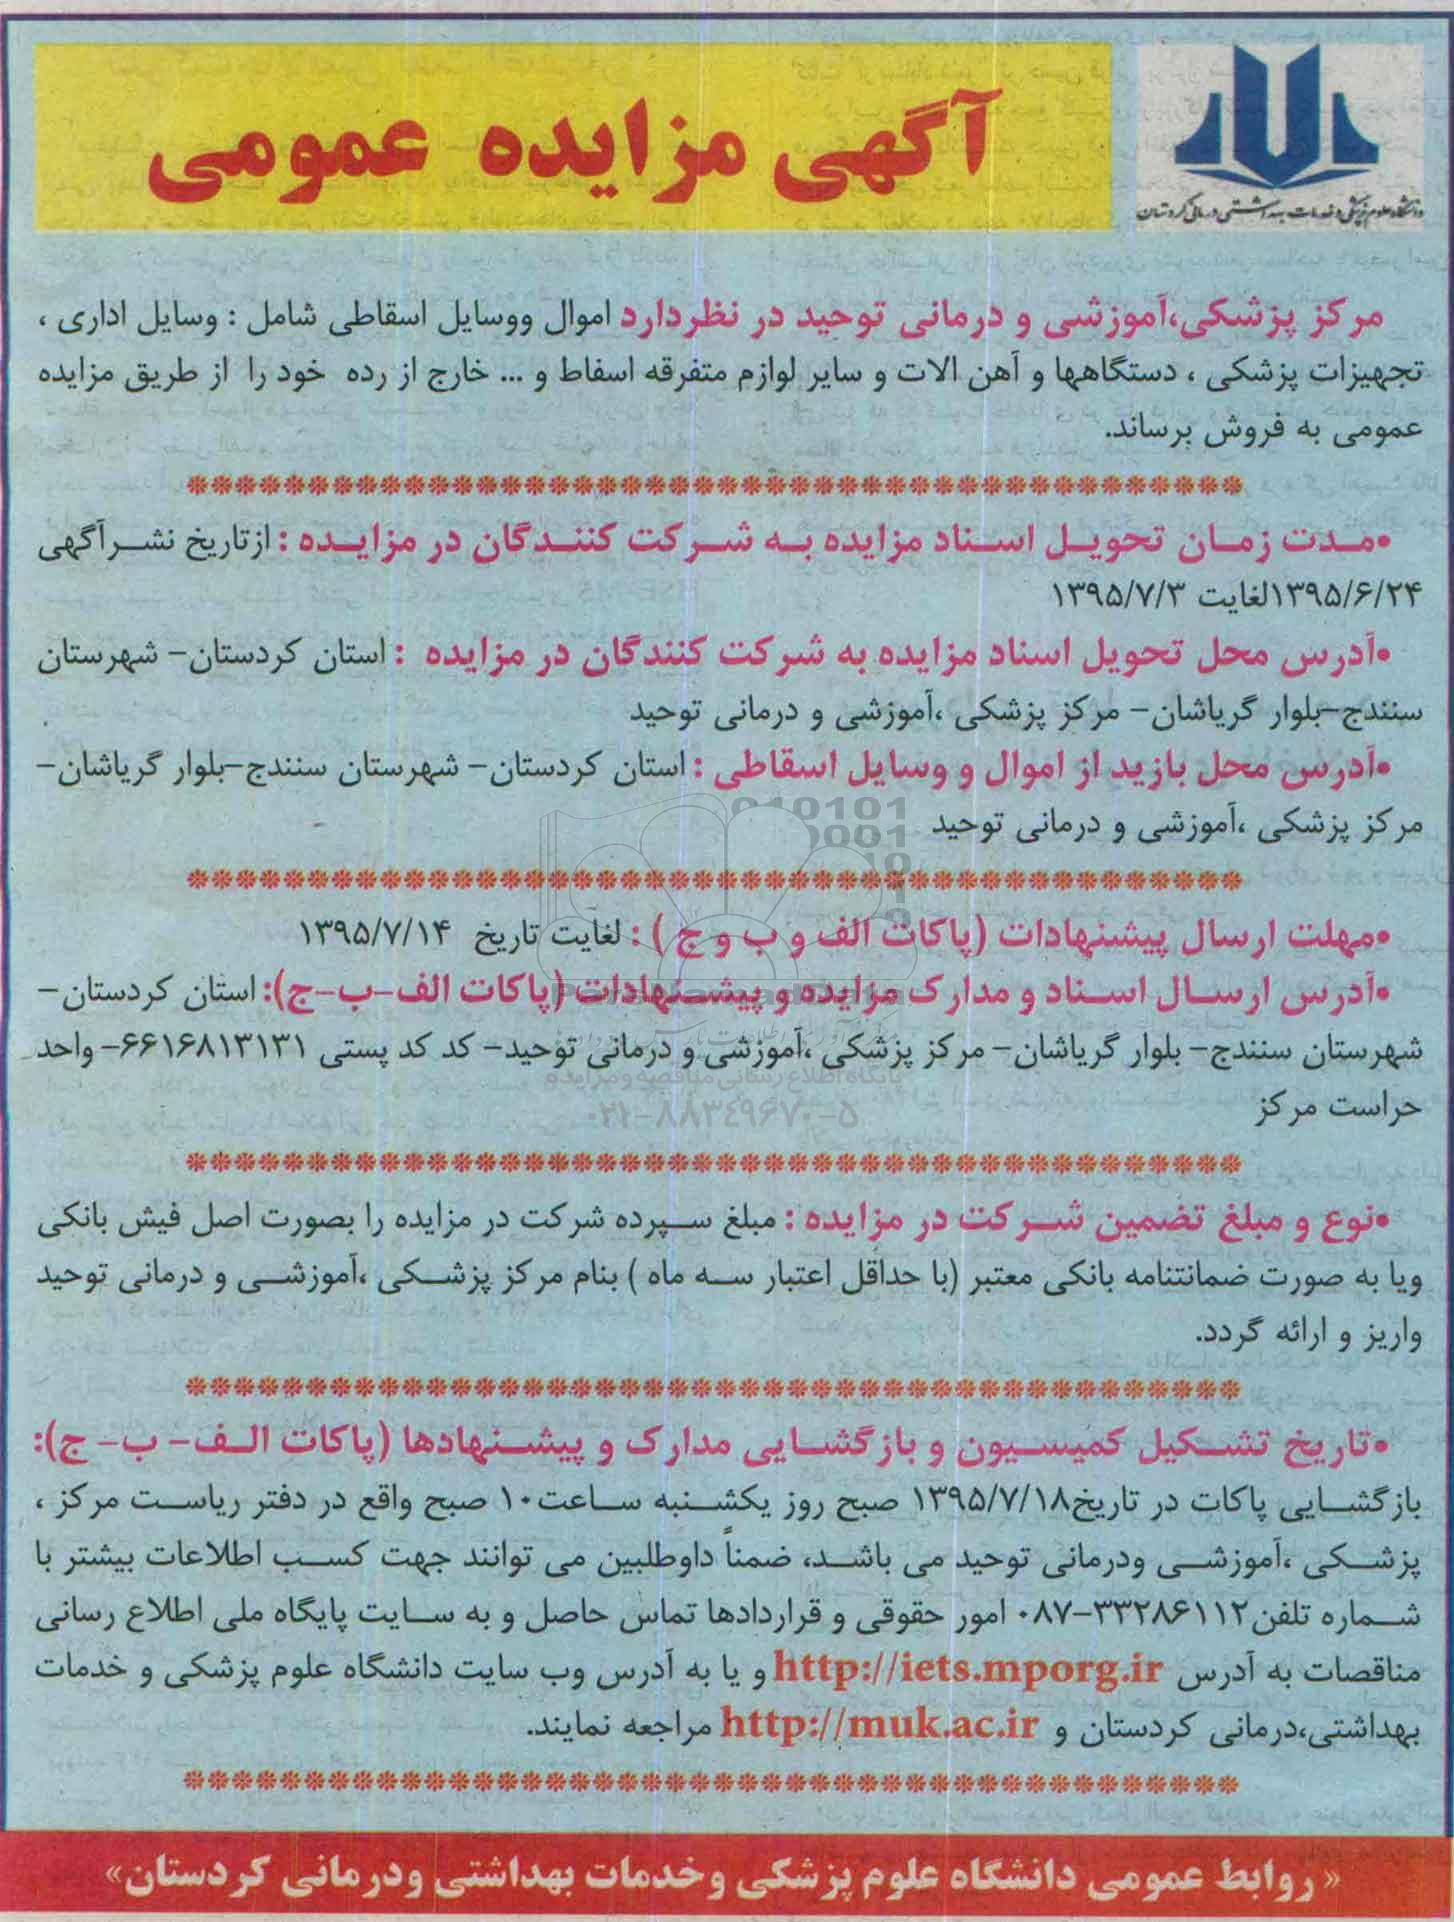 آگهی مزایده عمومی
دانشگاه علوم پزشکی و خدمات بهداشتی درمانی کردستان
مرکز پزشکی،آموزشی و درمانی توحید در نظردارد اموال ووسایل اسقاطی شامل : وسایل اداری ،
تجهیزات پزشکی ، دستگاهها و آهن الات و سایر لوازم متفرقه اسفاط و ... خارج از رده خود را از طریق مزایده
عمومی به فروش برساند.
•مدت زمان تحویل اسناد مزایده به شرکت کنندگان در مزایده : ازتاریخ نشرآگهی
۱۳۹۵/۶/۲۴لغایت ۱۳۹۵/۷/۳
•آدرس محل تحویل اسناد مزایده به شرکت کنندگان در مزایده : استان کردستان- شهرستان
سنندج-بلوار گریاشان- مرکز پزشکی ،آموزشی و درمانی توحید
•آدرس محل بازید از اموال و وسایل اسقاطی : استان کردستان- شهرستان سنندج-بلوار گریاشان-
مرکز پزشکی ،آموزشی و درمانی توحید
•مهلت ارسال پیشنهادات (پاکات الف و ب و ج ) : لغایت تاریخ ۱۳۹۵/۷/۱۴
•آدرس ارسال اسناد و مدارک مزایده و پیشنهادات (پاکات الف-ب-ج): استان کردستان-
شهرستان سنندج- بلوار گریاشان- مرکز پزشکی ،آموزشی و درمانی توحید- کد کد پستی ۶۶۱۶۸۱۳۱۳۱- واحد
پایگاه اطلاع رسانی مناقصه و مزایده
حراست مرکز
۰۲۱-۸۸۳۴۹۶۷۰-۵
•نوع و مبلغ تضمین شرکت در مزایده : مبلغ سپرده شرکت در مزایده را بصورت اصل فیش بانکی
ویا به صورت ضمانتنامه بانکی معتبر (با حداقل اعتبار سه ماه ) بنام مرکز پزشکی ،آموزشی و درمانی توحید
واریز و ارائه گردد.
•تاریخ تشکیل کمیسیون و بازگشایی مدارک و پیشنهادها (پاکات الف- ب- ج):
بازگشایی پاکات در تاریخ۱۳۹۵/۷/۱۸ صبح روز یکشنبه ساعت۱۰ صبح واقع در دفتر ریاست مرکز ،
پزشکی ،آموزشی ودرمانی توحید می باشد، ضمناً داوطلبین می توانند جهت کسب اطلاعات بیشتر با
شماره تلفن۳۳۲۸۶۱۱۲-۰۸۷ امور حقوقی و قراردادها تماس حاصل و به سایت پایگاه ملی اطلاع رسانی
مناقصات به آدرس http://iets.mporg.ir و یا به آدرس وب سایت دانشگاه علوم پزشکی و خدمات
بهداشتی،درمانی کردستان و http://muk.ac.ir مراجعه نمایند.
« روابط عمومی دانشگاه علوم پزشکی وخدمات بهداشتی ودرمانی کردستان»